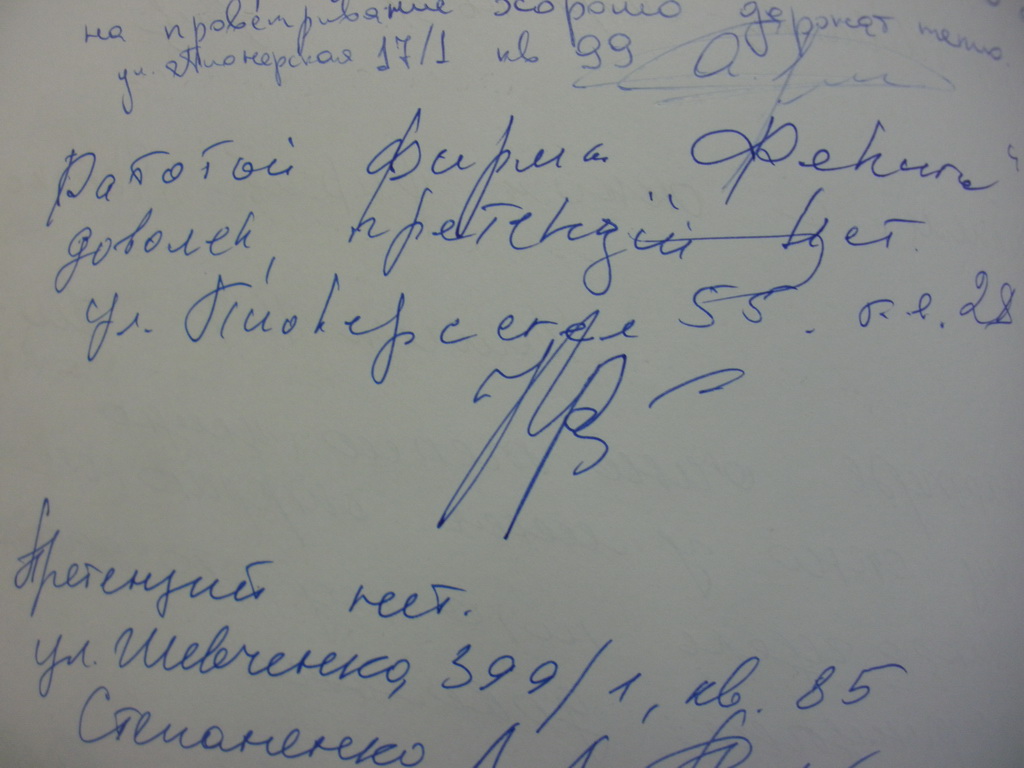 на проветривание хорошо держат тепло.
ул. Пионерская 17/1 кв 99
Работой фирма Фенита"
доволен, претензий нет.
ул. Пионерская 55. кв. 28
Претензий нет.
ул. Шевченко, 399/1, кв. 85
Степаненко